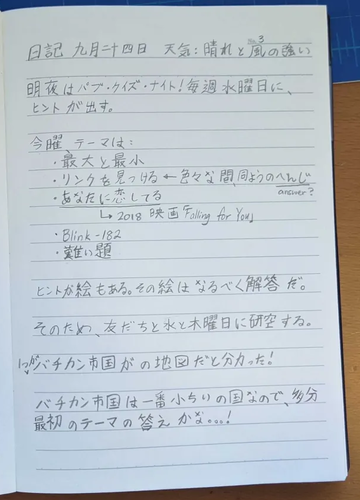 日記 九月二十四日 天気：晴れと風の強い
明夜はパブ・クイズ・ナイト！毎週 水曜日に、
ヒントが出す。
今曜 テーマは：
・最大と最小
・リンクを見つける ← 色々な間、同ようのへんじ
answer?
・あなたに恋してる
↳ 2018 映画「Falling for You」
・Blink-182
・難い題
ヒントが絵もある。その絵は なるべく解答 だ。
そのため、友だちと水と木曜日に研空する。
バチカン市国がの地図だと分かった！
バチカン市国は一番小ちいの国なので、多分
最初のテーマの答えかな。。。！